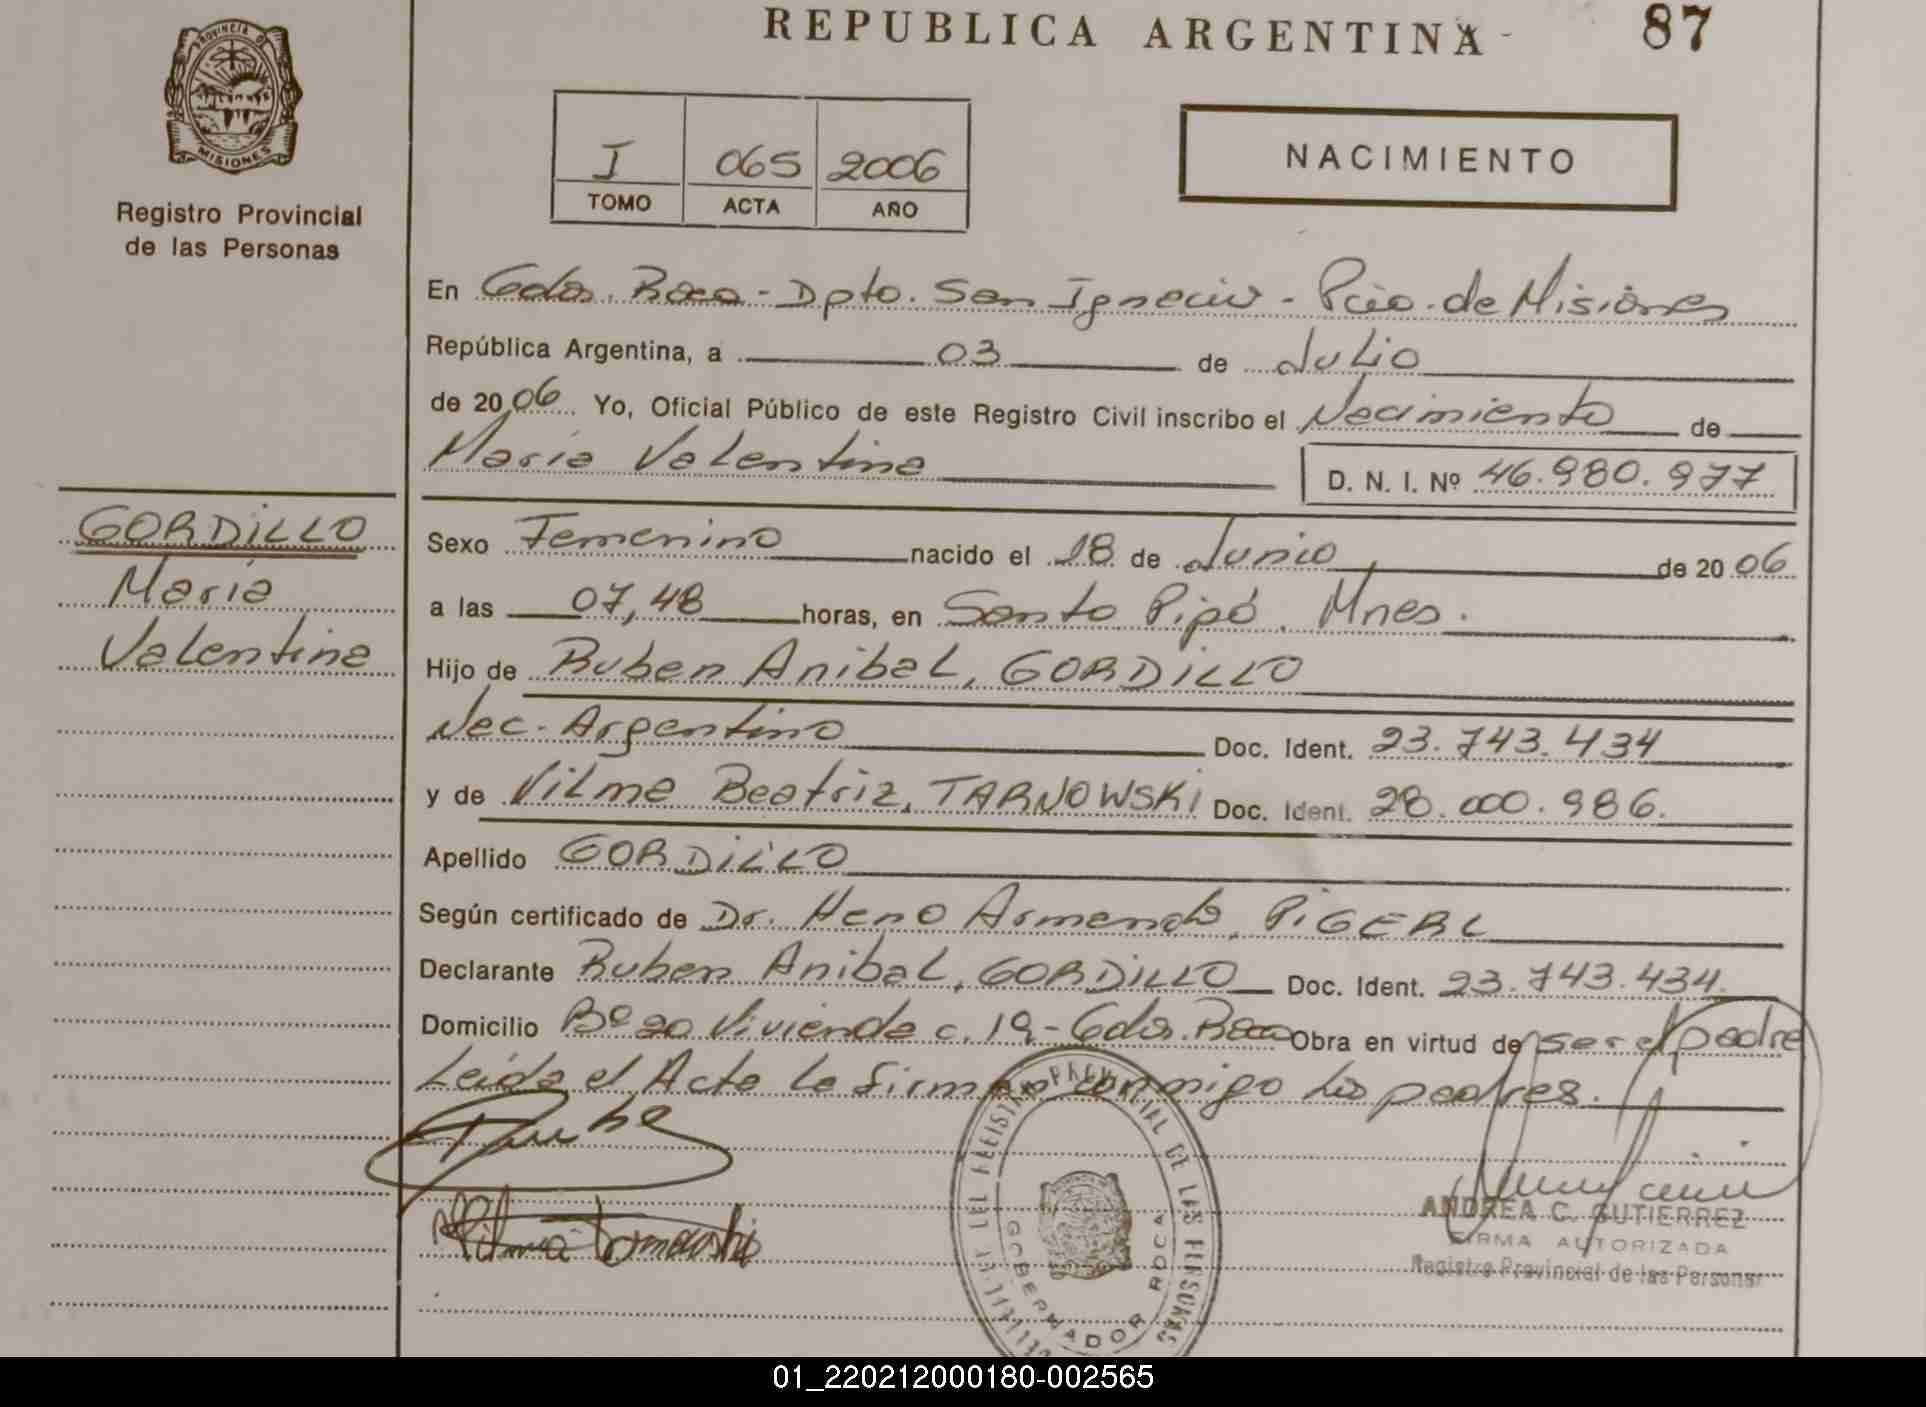 REPUBLICA ARGENTINA
87
PROVINCIA DE
MISIONES
Registro Provincial
de las Personas
I 065 2006
TOMO ACTA AÑO
NACIMIENTO
En Gdor. Roca - Dpto. San Ignacio - Pcia. de Misiones
República Argentina, a 03 de Julio
de 2006 Yo, Oficial Público de este Registro Civil inscribo el Nacimiento de
María Valentina
D. N. I. Nº 46.980.977
GORDILLO
María
Valentina
Sexo Femenino nacido el 18 de Junio de 2006
a las 07,48 horas, en Santo Pipó. Mnes.
Hijo de Ruben Anibal, GORDILLO
Nac. Argentino Doc. Ident. 23.743.434
y de Vilma Beatriz, TARNOWSKI Doc. Ident. 28.000.986.
Apellido GORDILLO
Según certificado de Dr. Armando, PIGERL
Declarante Ruben Anibal, GORDILLO Doc. Ident. 23.743.434.
Domicilio Bº 20 Vivienda c. 19 - Gdor. Roca Obra en virtud de ser el padre
Leída el Acta la firman conmigo los padres.
REGISTRO PROVINCIAL DE LAS PERSONAS
GOBERNADOR ROCA
ANDREA C. GUTIERREZ
FIRMA AUTORIZADA
Registro Provincial de las Personas
01_220212000180-002565